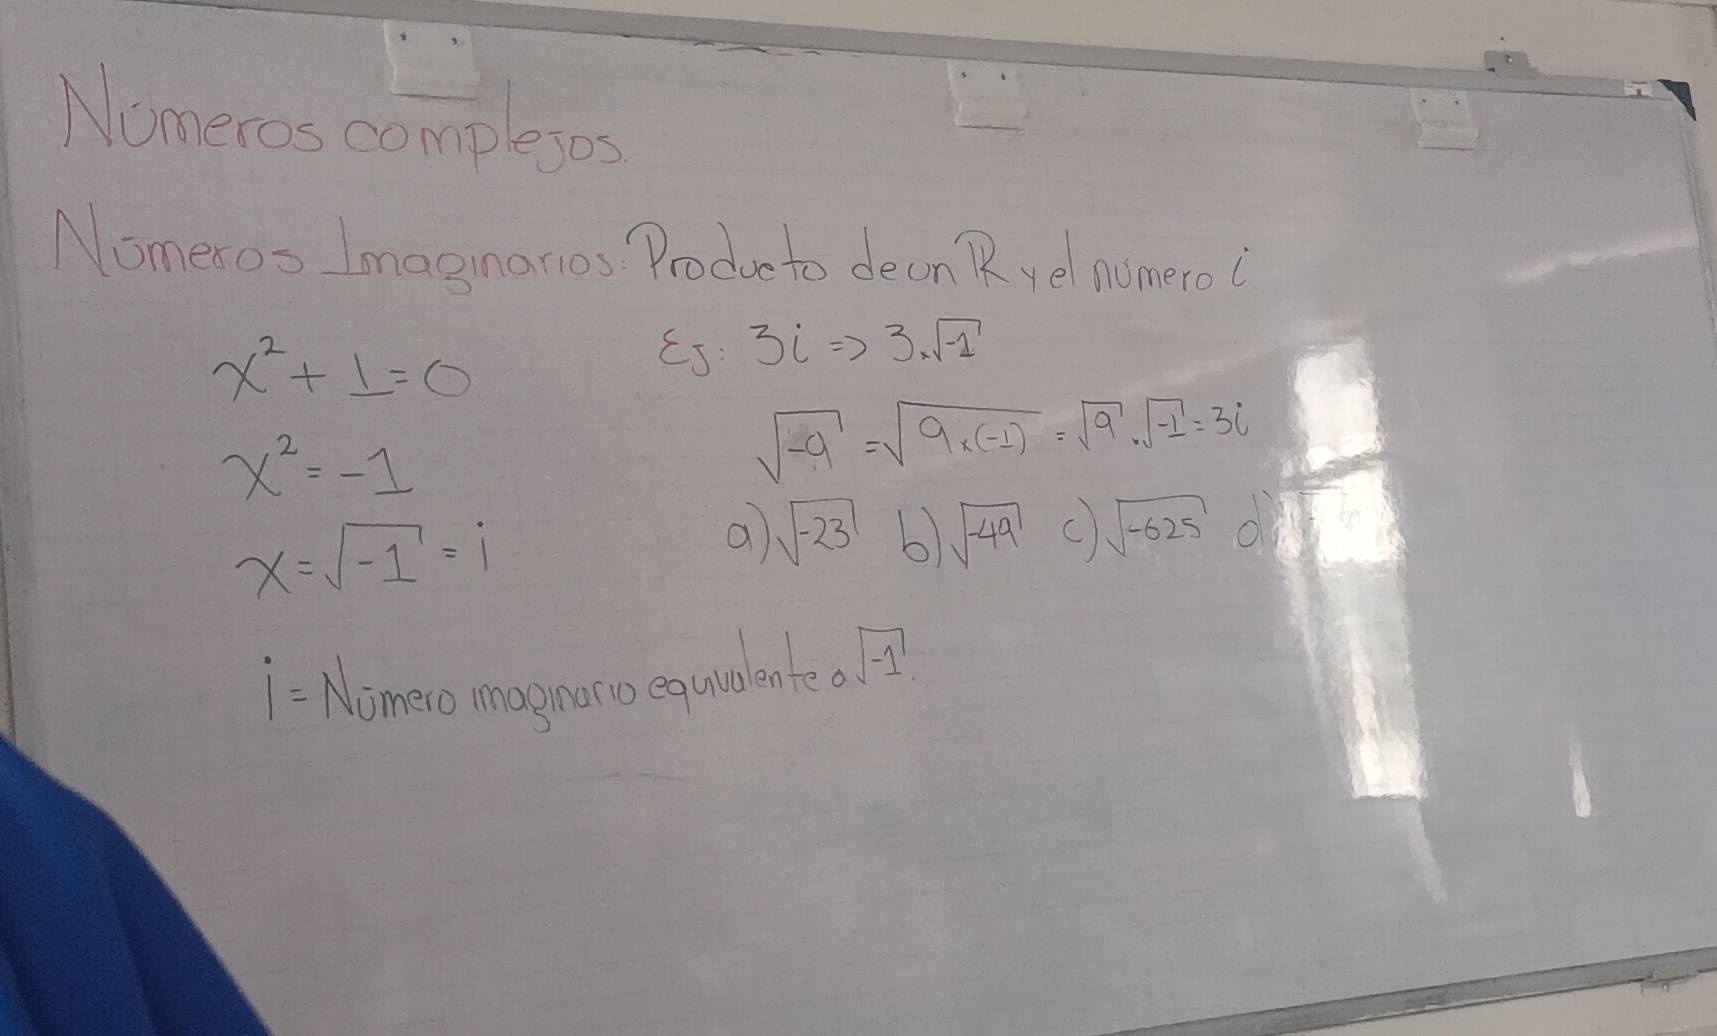 Números complejos.
Números Imaginarios: Producto de un ℝ y el número i
x² + 1 = 0
x² = -1
x = √-1 = i
Ej: 3i => 3.√-1
√-9 = √9x(-1) = √9 . √-1 = 3i
a) √-23 b) √-49 c) √-625 d)
i = Número imaginario equivalente a √-1.